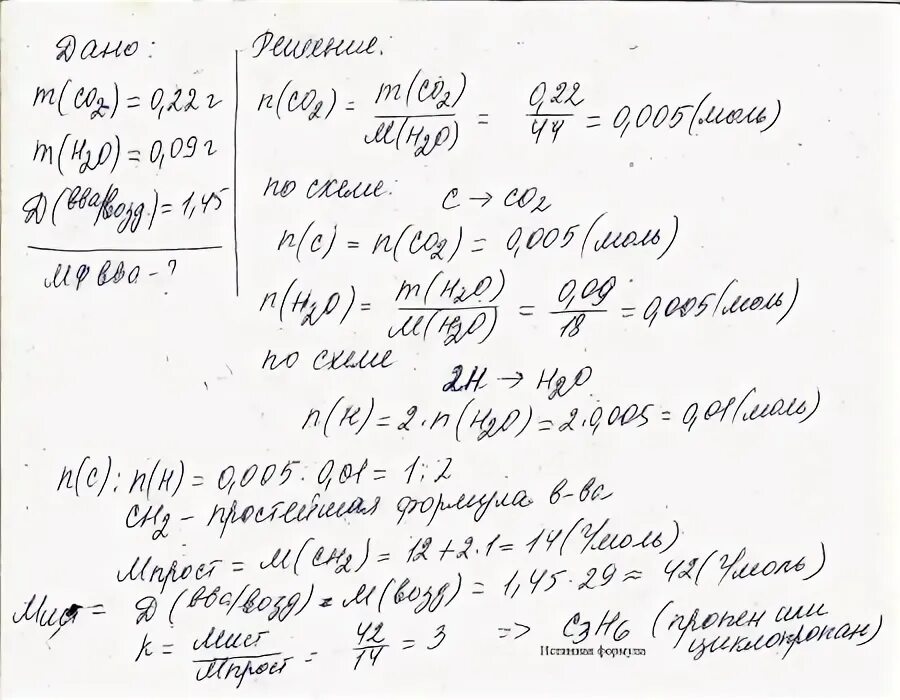 Дано:
m(CO₂) = 0,22 г
m(H₂O) = 0,09 г
Д(вва/возд.) = 1,45
МФ вва - ?
Решение:
n(CO₂) = m(CO₂)/M(H₂O) = 0,22/44 = 0,005 (моль)
по схеме:
C → CO₂
n(C) = n(CO₂) = 0,005 (моль)
n(H₂O) = m(H₂O)/M(H₂O) = 0,09/18 = 0,005 (моль)
по схеме
2H → H₂O
n(H) = 2·n(H₂O) = 2·0,005 = 0,01 (моль)
n(C) : n(H) = 0,005 : 0,01 = 1 : 2
CH₂ - простейшая формула в-ва
Mпрост = M(CH₂) = 12 + 2·1 = 14 (г/моль)
Mист = Д(вва/возд) · M(возд) = 1,45 · 29 ≈ 42 (г/моль)
k = Mист/Mпрост = 42/14 = 3 => C₃H₆ (пропен или
циклопропан)
Истинная формула